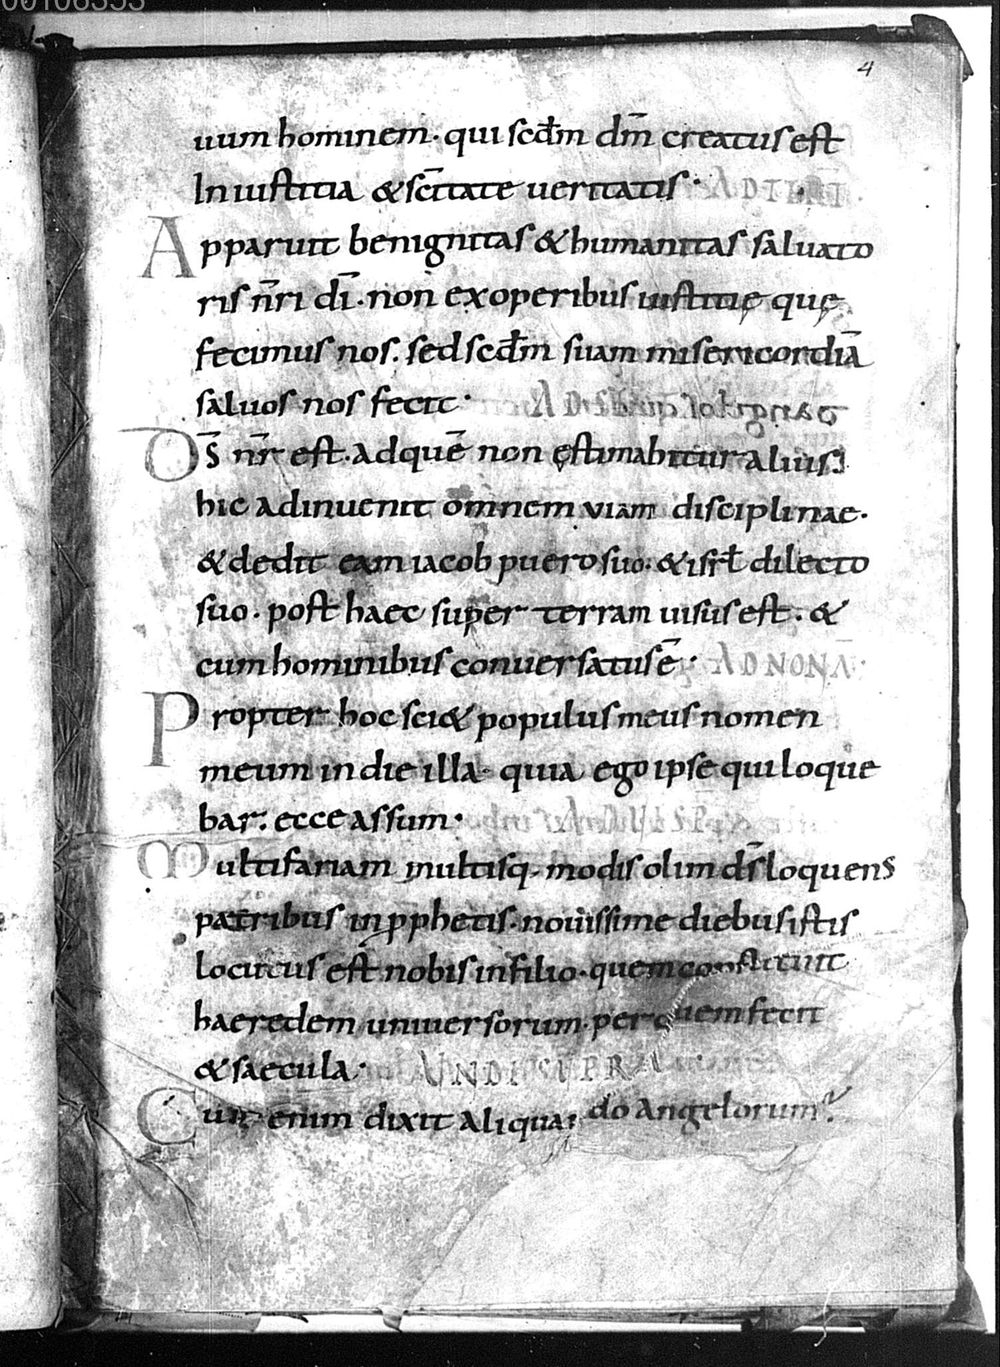 00106353
4
uum hominem· qui scđm dm̄ creatus est
In iustitia & sc̄itate ueritatis· AD
Apparuit benignitas & humanitas saluato
ris n̄ri dī· non ex operibus iustitię quę
fecimus nos· sed scđm suam misericordiā
saluos nos fecit·
D̄s n̄r est· ad quē non ęstimabitur alius·
hic adinuenit omnem viam disciplinae·
& dedit eam iacob puero suo· & isrƚ dilecto
suo· post haec super terram uisus est· &
cum hominibus conuersatus ē· AD NONĀ·
Propter hoc sci& populus meus nomen
meum in die illa· quia ego ipse qui loque
bar· ecce assum·
Multifariam multisq· modis olim ds̄ loquens
patribus in pphetis· nouissime diebus istis
locutus est nobis in filio· quem constituit
haeredem uniuersorum· per quem fecit
& saecula· SUPRA
Cui enim dixit aliquando angelorum?